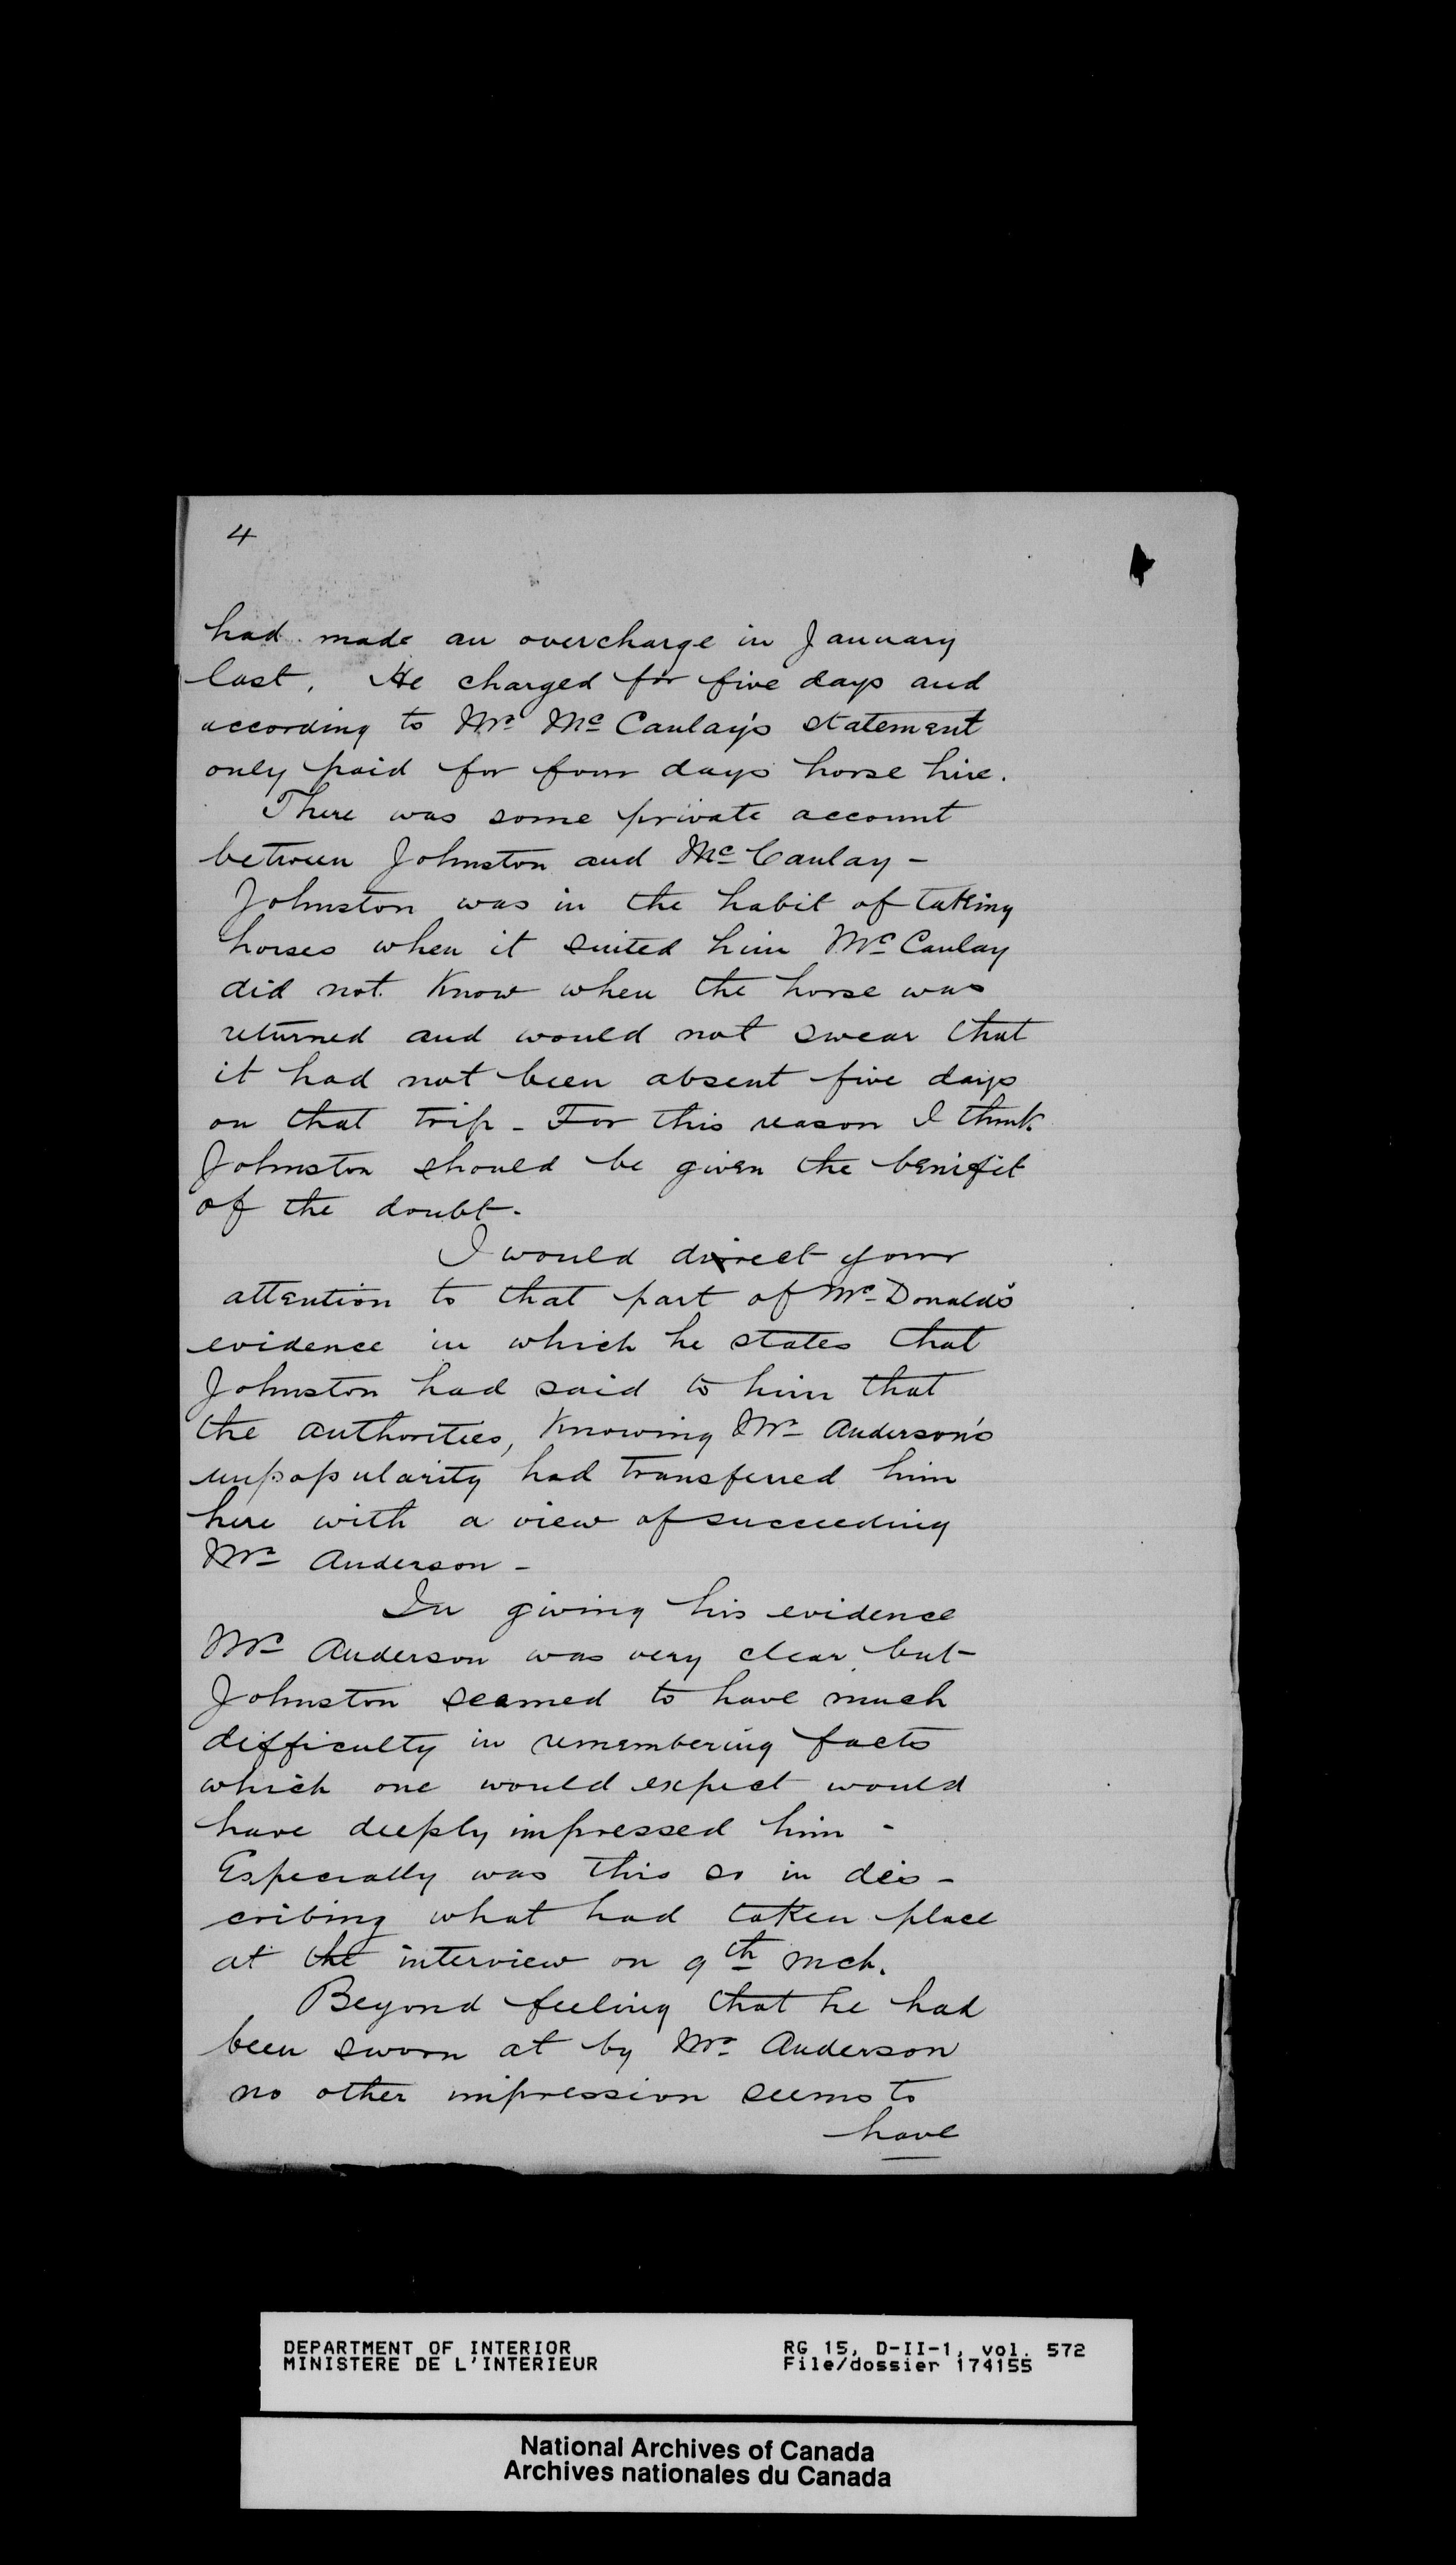 4
had made an overcharge in January
last. He charged for five days and
according to Mr. McCaulay's statement
only paid for four days horse hire.
There was some private account
between Johnston and McCaulay -
Johnston was in the habit of taking
horses when it suited him McCaulay
did not know when the horse was
returned and would not swear that
it had not been absent five days
on that trip - For this reason I think
Johnston should be given the benifit
of the doubt.
I would direct your
attention to that part of McDonald's
evidence in which he states that
Johnston had said to him that
the authorities, knowing Mr. Anderson's
unpopularity had transferred him
here with a view of succeeding
Mr. Anderson -
In giving his evidence
Mr. Anderson was very clear but
Johnston seemed to have much
difficulty in remembering facts
which one would expect would
have deeply impressed him -
Especially was this so in des-
cribing what had taken place
at the interview on 9th Mch.
Beyond feeling that he had
been sworn at by Mr. Anderson
no other impression seems to
have
DEPARTMENT OF INTERIOR
MINISTERE DE L'INTERIEUR
RG 15, D-II-1, vol. 572
File/dossier 174155
National Archives of Canada
Archives nationales du Canada